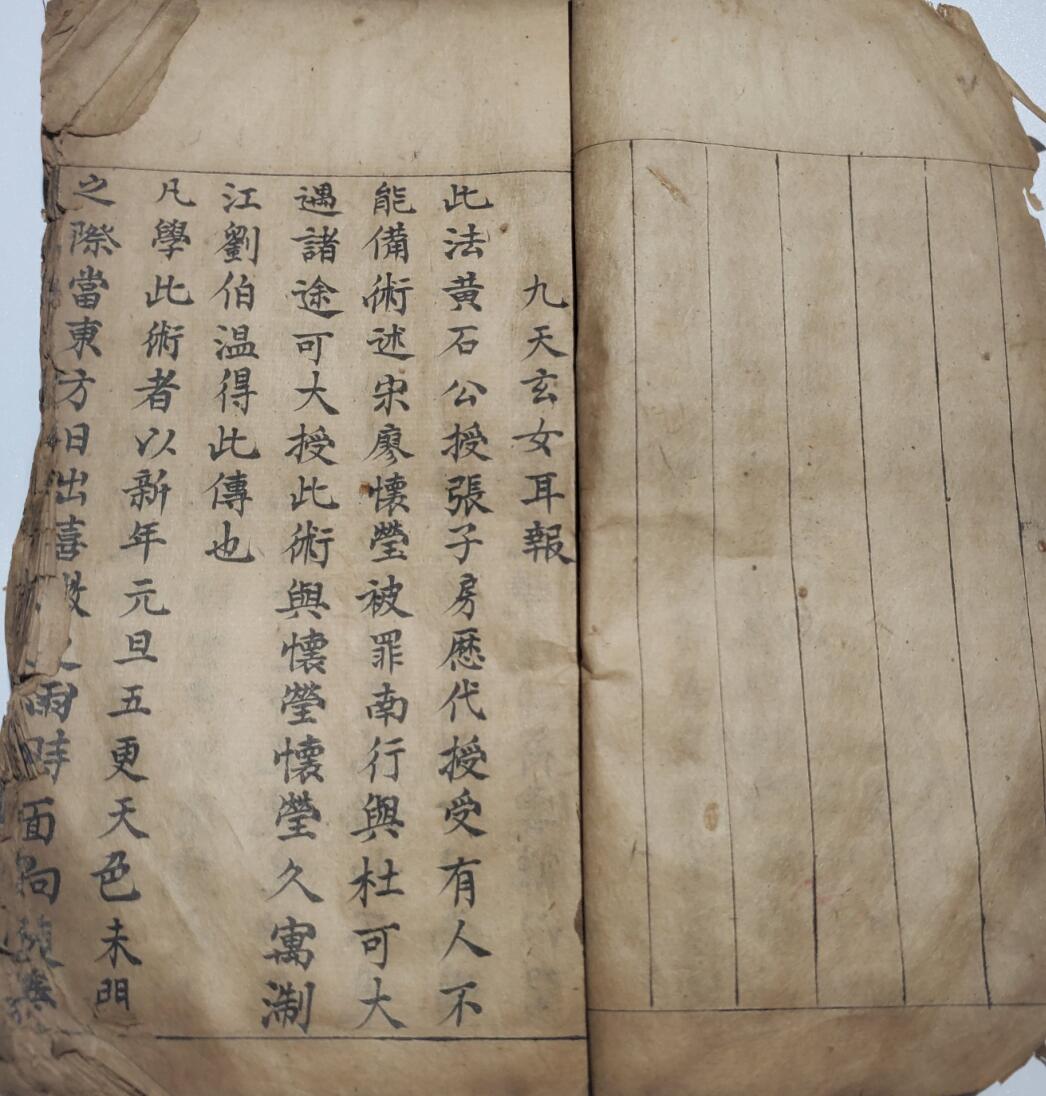 九天玄女耳報
此法黄石公授張子房歷代授受有人不
能備術述宋廖懷瑩被罪南行與杜可大
遇諸途可大授此術與懷瑩懷瑩久寓淛
江劉伯温得此傳也
凡學此術者以新年元旦五更天色未明
之際當東方日出喜 雨時面向